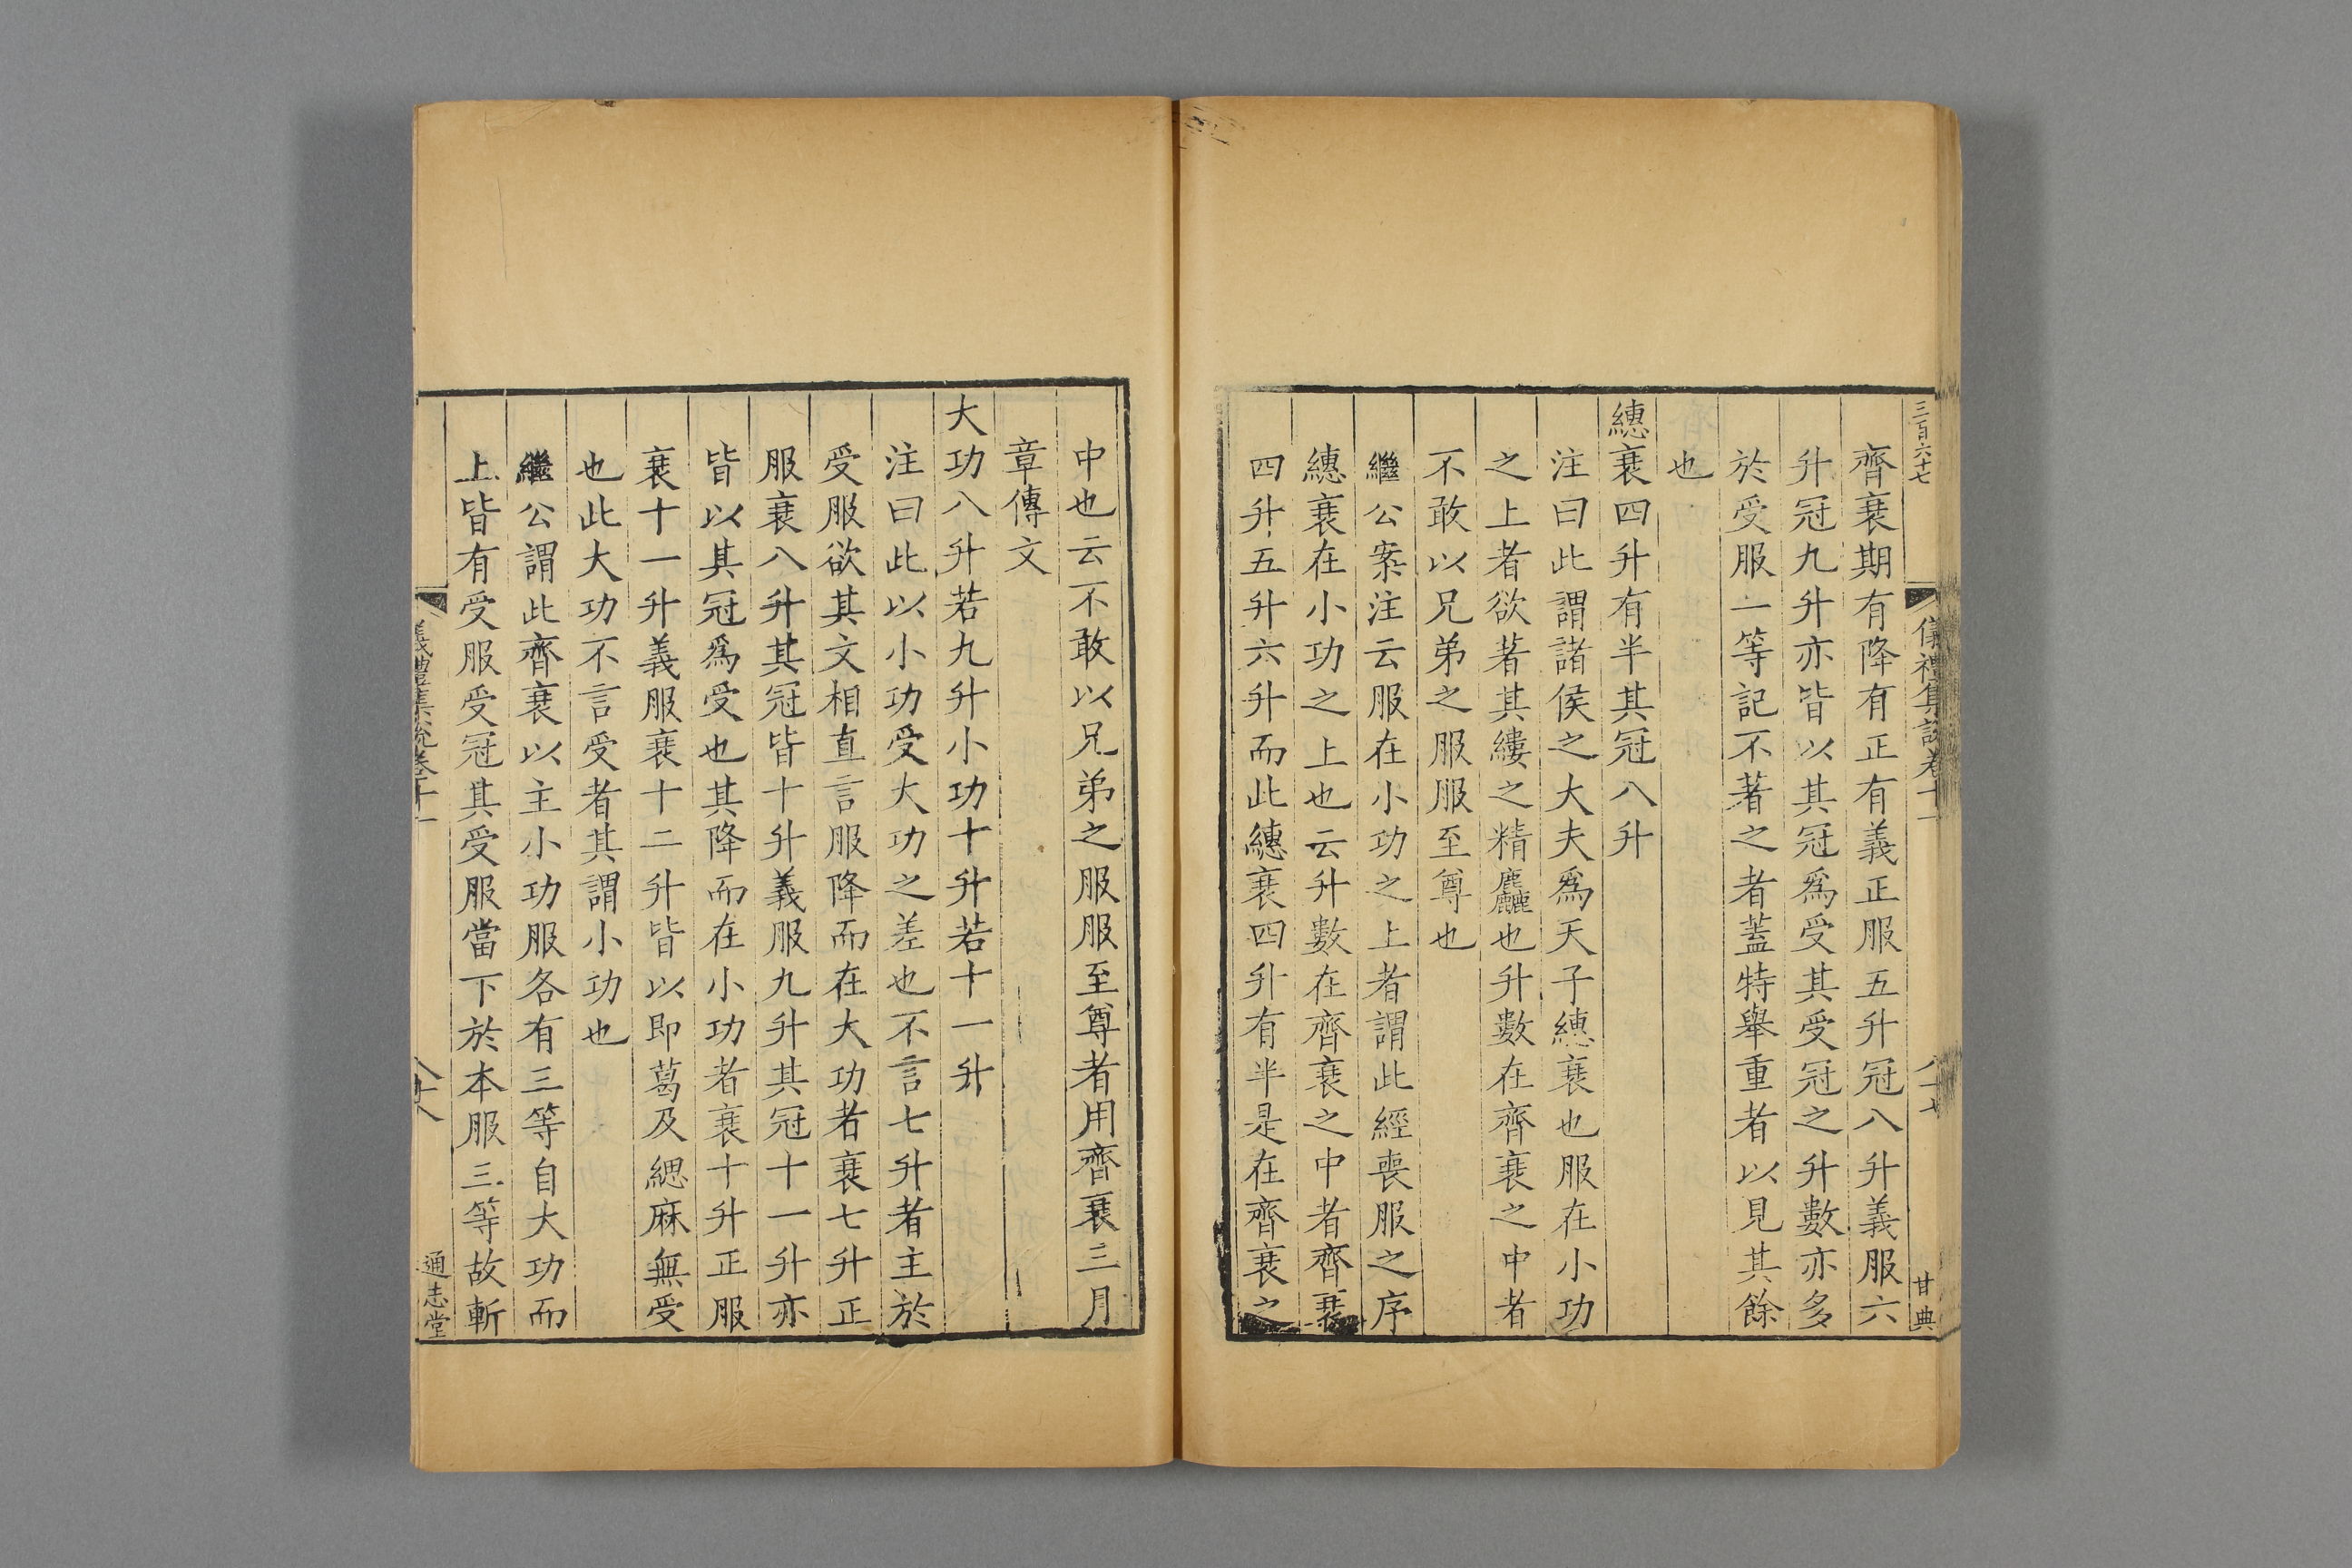 三百六十七
儀禮集說卷十一
八十七
甘典
齊衰期有降有正有義正服五升冠八升義服六
升冠九升亦皆以其冠爲受其受冠之升數亦多
於受服一等記不著之者蓋特舉重者以見其餘
也
繐衰四升有半其冠八升
注曰此謂諸侯之大夫爲天子繐衰也服在小功
之上者欲著其縷之精麤也升數在齊衰之中者
不敢以兄弟之服服至尊也
繼公案注云服在小功之上者謂此經喪服之序
繐衰在小功之上也云升數在齊衰之中者齊衰
四升五升六升而此繐衰四升有半是在齊衰之
中也云不敢以兄弟之服服至尊者用齊衰三月
章傳文
大功八升若九升小功十升若十一升
注曰此以小功受大功之差也不言七升者主於
受服欲其文相直言服降而在大功者衰七升正
服衰八升其冠皆十升義服九升其冠十一升亦
皆以其冠爲受也其降而在小功者衰十升正服
衰十一升義服衰十二升皆以即葛及緦麻無受
也此大功不言受者其謂小功也
繼公謂此齊衰以主小功服各有三等自大功而
上皆有受服受冠其受服當下於本服三等故斬
儀禮集說卷十一
八十八
通志堂